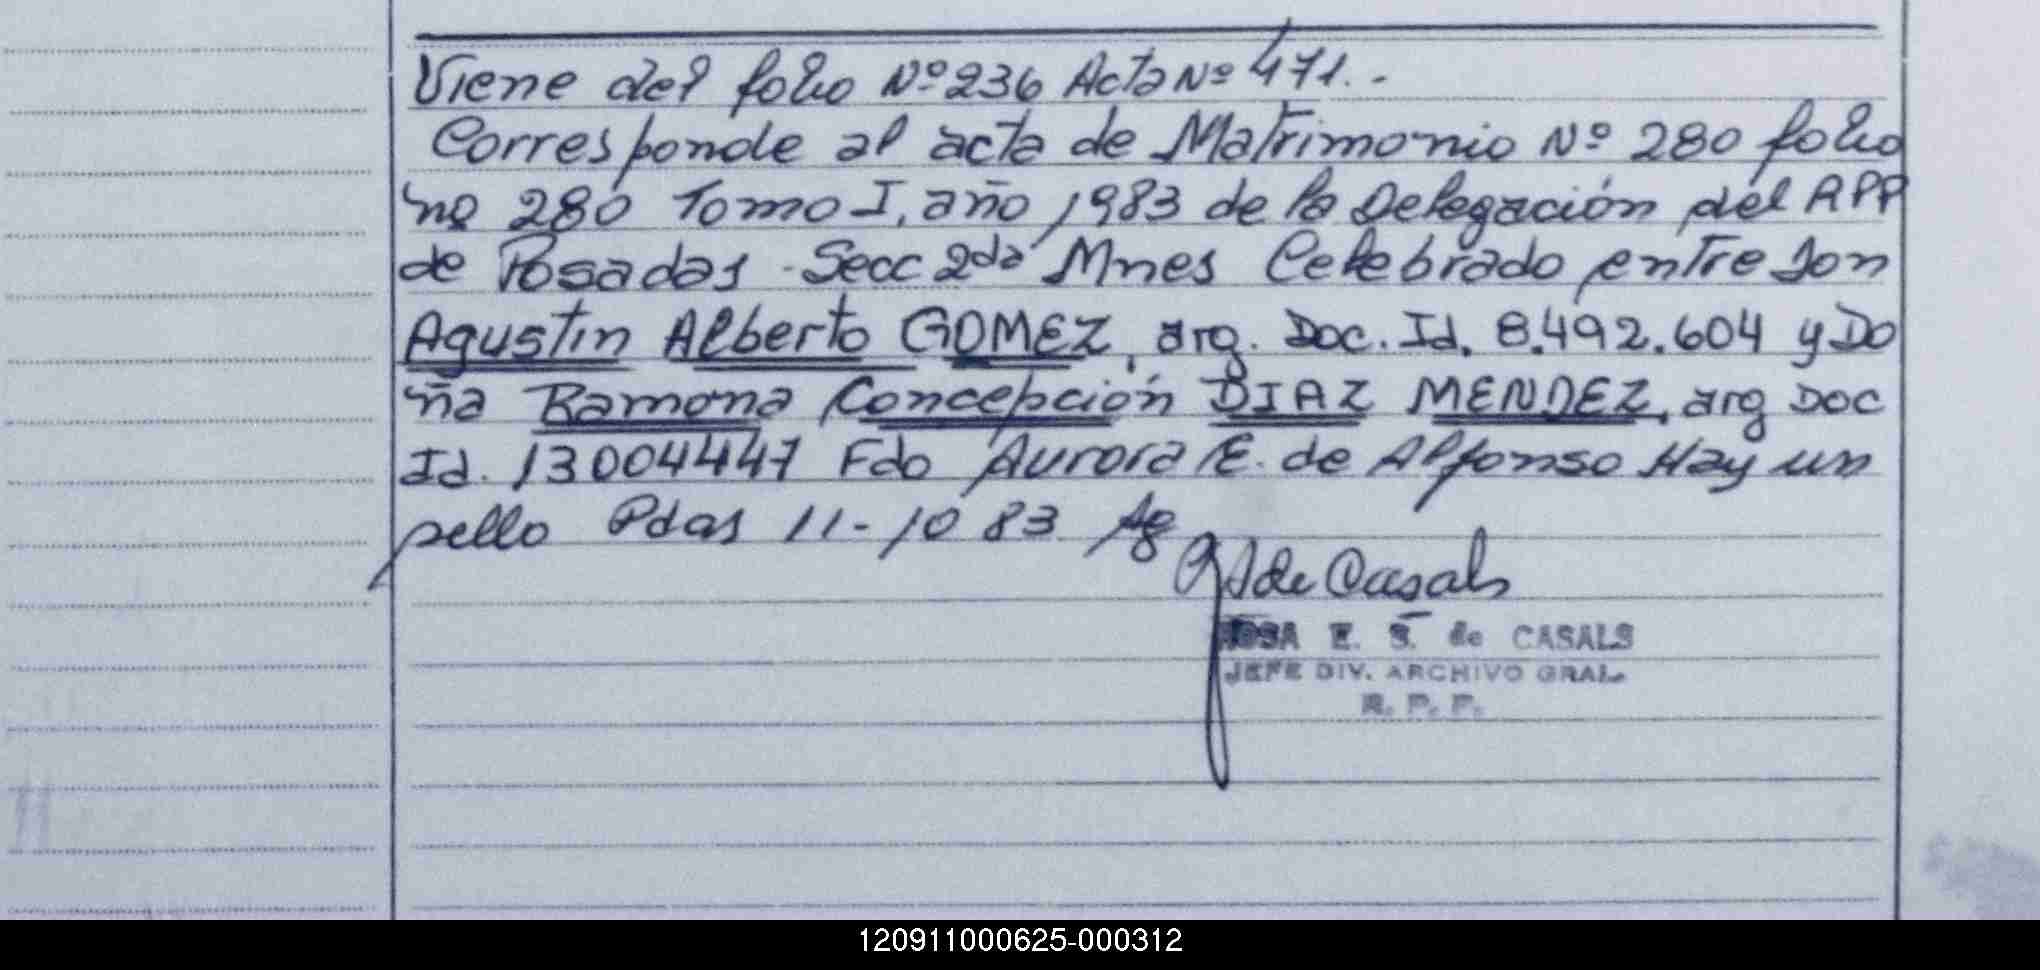 Viene del folio Nº 236 Acta Nº 471.-
Corresponde al acta de Matrimonio Nº 280 folio
nº 280 Tomo I, año 1983 de la Delegación del RPP
de Posadas - Secc 2da Mnes Celebrado entre Don
Agustin Alberto GOMEZ, arg. Doc. Id. 8.492.604 y Do
ña Ramona Concepción DIAZ MENDEZ, arg Doc
Id. 13004447 Fdo Aurora E. de Alfonso Hay un
sello Pdas 11-10 83
de Casals
ROSA E. S. de CASALS
JEFE DIV. ARCHIVO GRAL.
R. P. P.
120911000625-000312